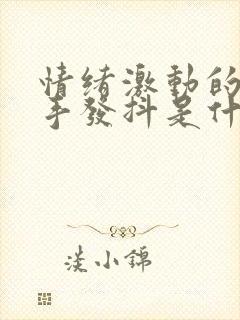 情緒激動的
手發抖是什
淡小錦